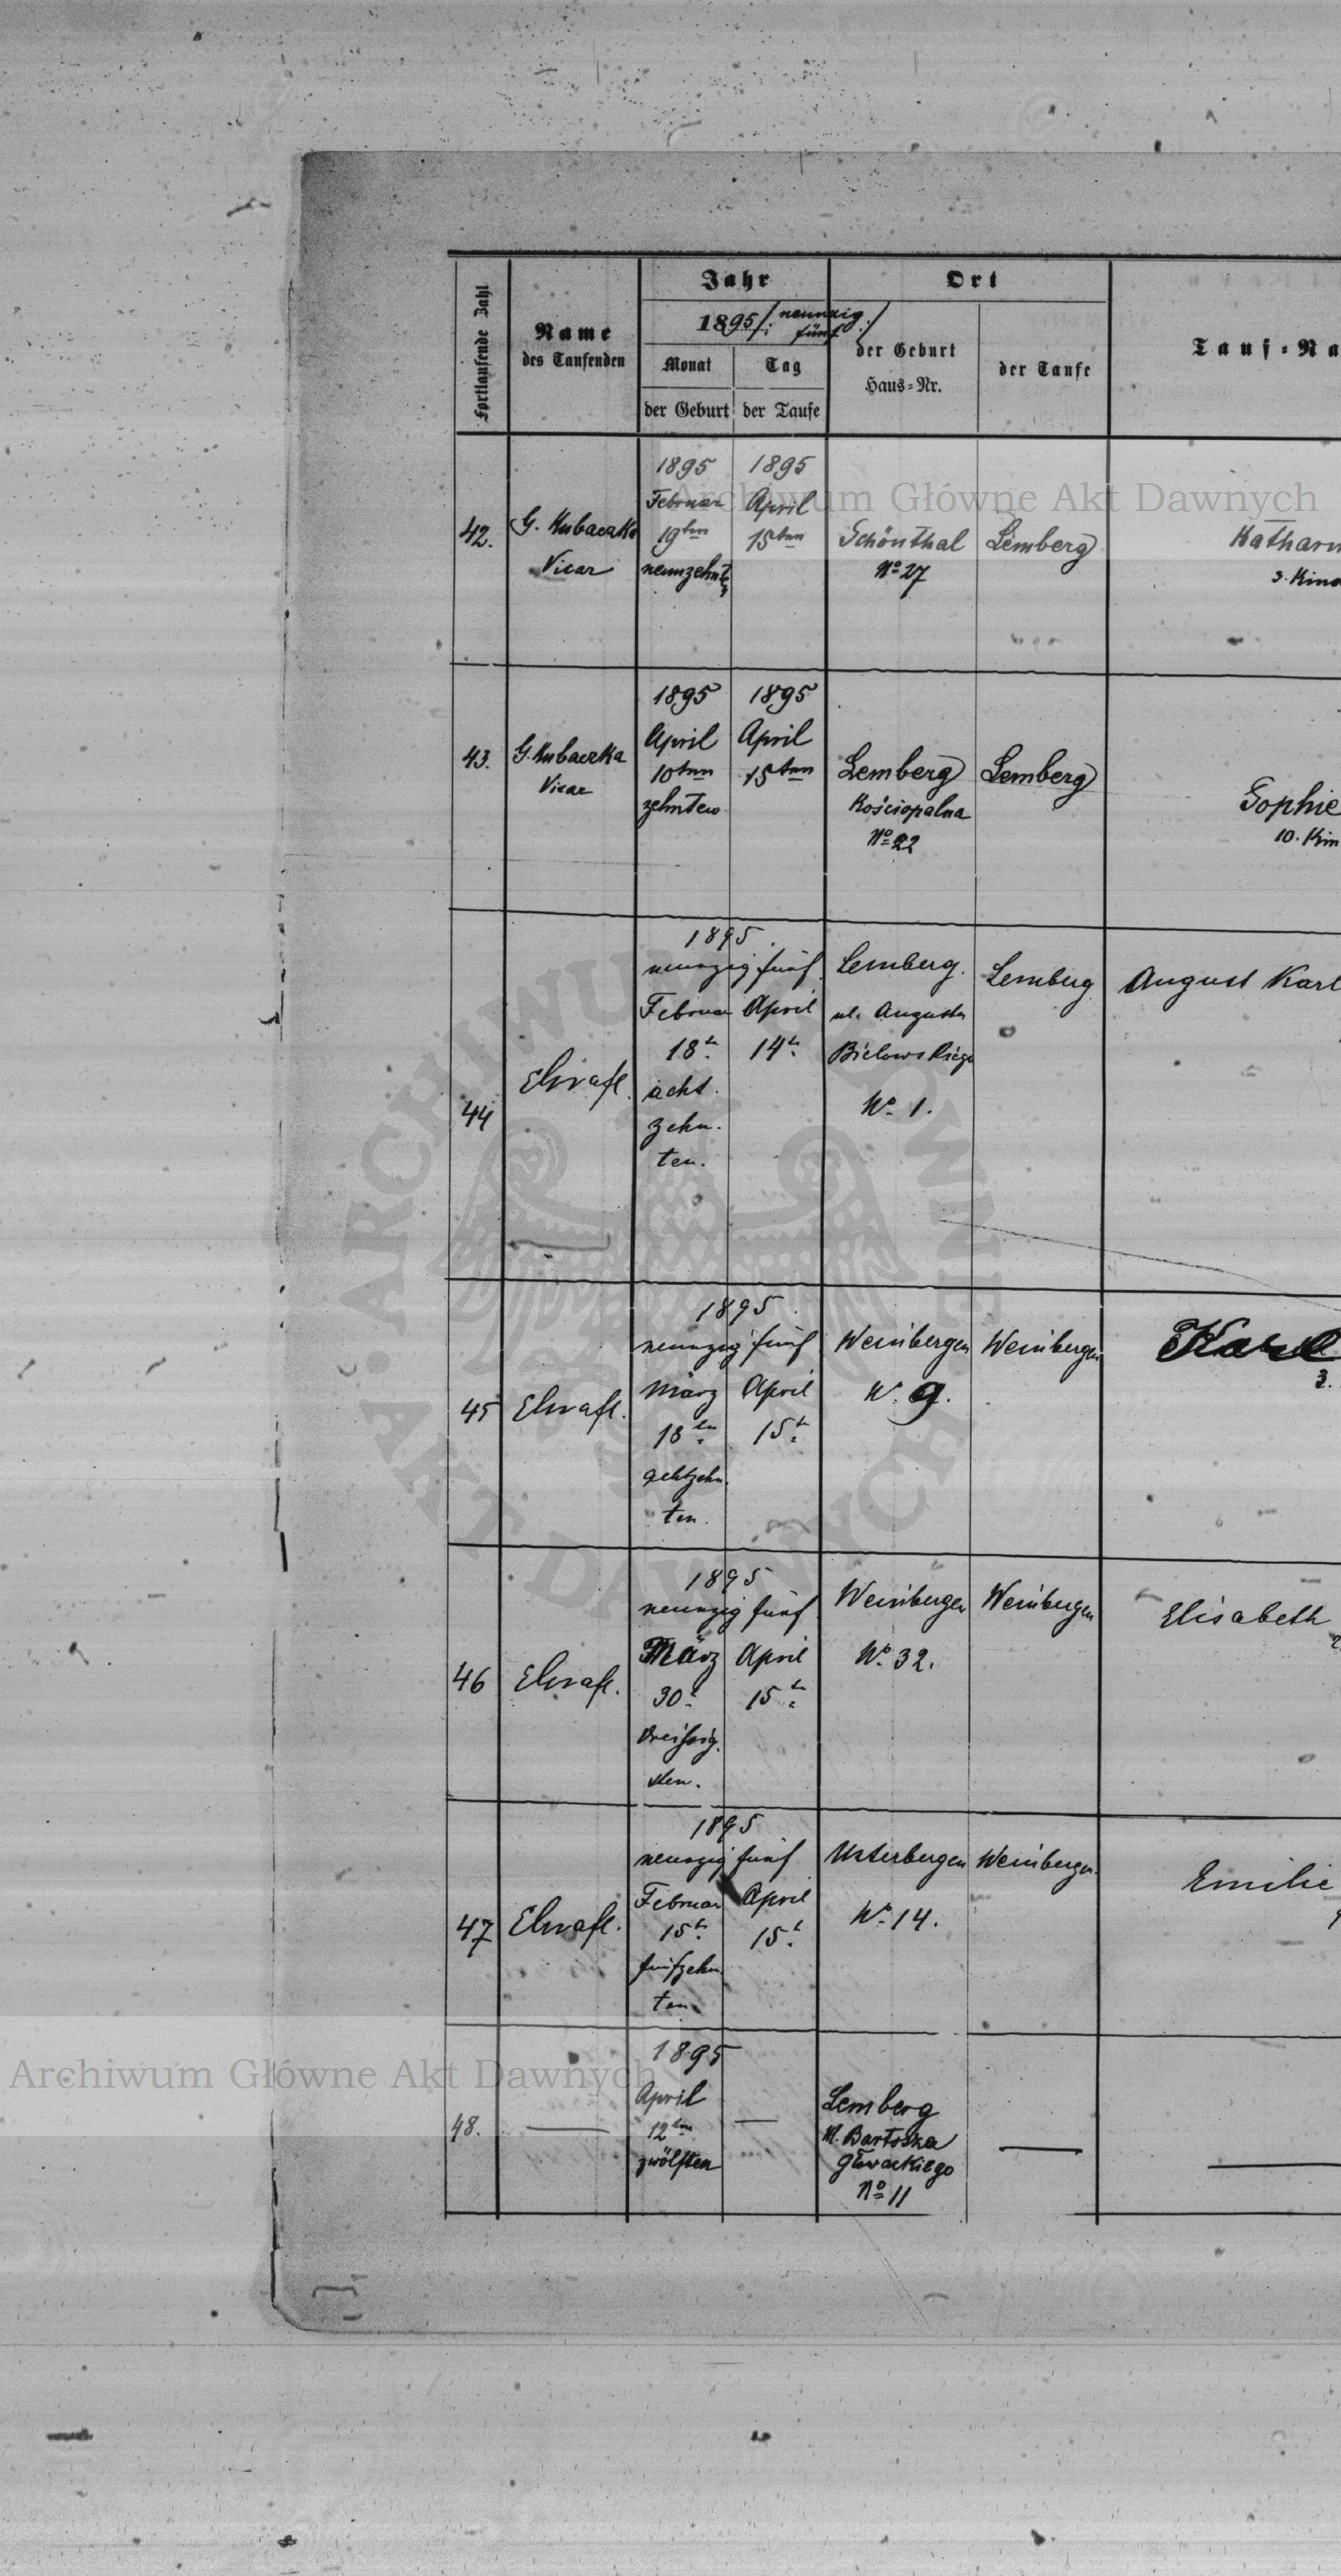 Fortlaufende Zahl
Name
des Taufenden
Jahr
1895/: neunzig
fünf :/
Monat
Tag
der Geburt
der Taufe
Ort
der Geburt
Haus-Nr.
der Taufe
Tauf-Na
Archiwum Główne Akt Dawnych
42.
G. Kubaczka
Vicar
1895
Februar
19ten
neunzehnten
1895
April
15ten
Schönthal
No 27
Lemberg
Katharin
3. Kind
43.
G. Kubaczka
Vicar
1895
April
10ten
zehnten
1895
April
15ten
Lemberg
Kościopalna
No 22
Lemberg
Sophie
10. Kin
44
1895
neunzig fünf
Februar
18t.
acht
zehn.
ten.
April
14t.
Lemberg.
ul. Augusta
Bielowskiego
No 1.
Lemberg
August Karl
45
1895
neunzig fünf
März
18ten
achtzehn.
ten.
April
15t.
Weinbergen
No. 9.
Weinbergen
Karl
3.
46
1895
neunzig fünf
März
30t.
dreißig.
sten.
April
15t.
Weinbergen
No. 32.
Weinbergen
Elisabeth
47
1895
neunzig fünf
Februar
15t.
fünfzehn.
ten
April
15t.
Unterbergen
No. 14.
Weinbergen
Emilie
48.
1895
April
12ten
zwölften
Lemberg
ul. Bartosza
Głowackiego
No 11
ARCHIWUM GŁÓWNE
AKT DAWNYCH
Archiwum Główne Akt Dawnych